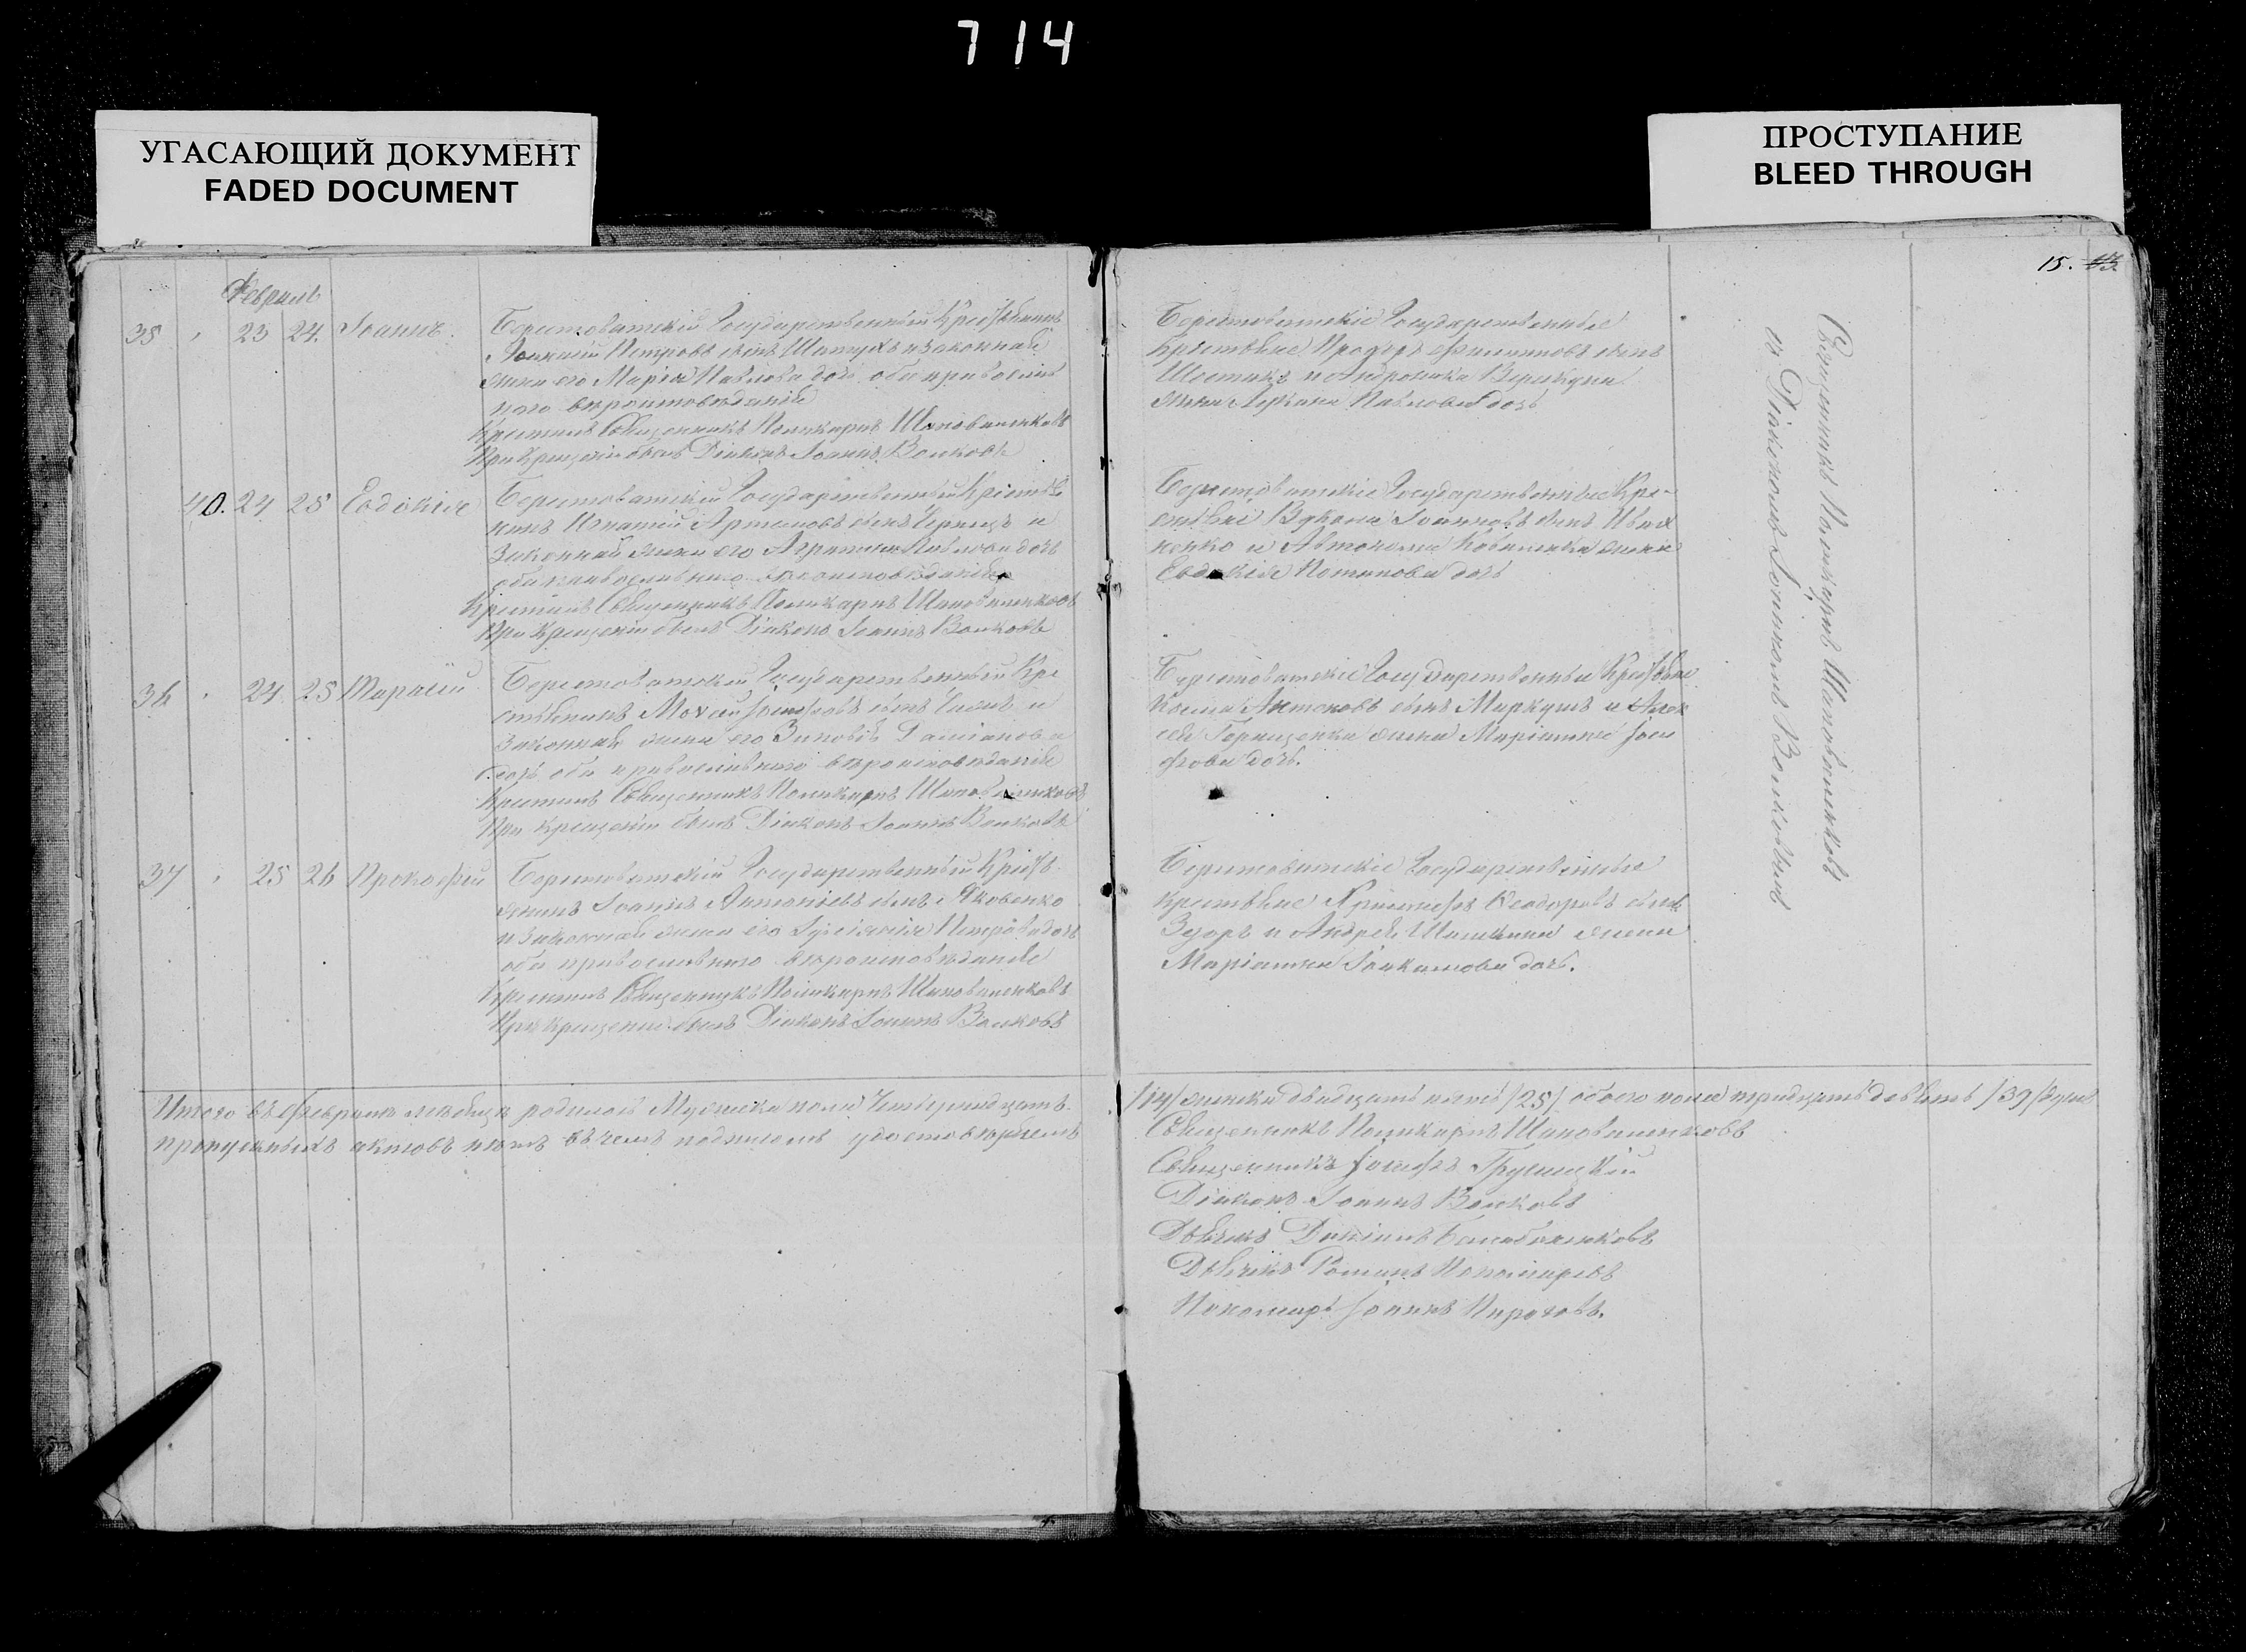 714
УГАСАЮЩИЙ ДОКУМЕНТ
FADED DOCUMENT
ПРОСТУПАНИЕ
BLEED THROUGH
15. 13
Февраль
35 23 24. Іоаннъ.
Берестоватскій Государственный Крестьянинъ
Іоакимъ Петровъ сынъ и законная
жена его Марія Павлова дочь оба православ
наго вѣроисповѣданія
Крестилъ Священникъ Поликарпъ Шаповаленковъ
При Крещеніи былъ Діаконъ Іоаннъ Волковъ
Берестоватскіе Государственные
Крестьяне Прохоръ сынъ
и Андроника
жена Павлова дочь
40. 24 25 Евдокія
Берестоватскій Государственный Крестья
нинъ Игнатій Артемовъ сынъ и
Законная жена его Агрипина Павлова дочь
оба православнаго вѣроисповѣданія
Крестилъ Священникъ Поликарпъ Шаповаленковъ
При Крещеніи былъ Діаконъ Іоаннъ Волковъ
Берестоватскіе Государственные Кре-
стьяне Іоанновъ сынъ Ивах
ненко и жена
Евдокія Потапова дочь
36 24 25 Тарасій
Берестоватскій Государственный Кре
стьянинъ Мокій Іосифовъ сынъ и
Законная жена его Зиновія Даміанова
дочь оба православнаго вѣроисповѣданія
Крестилъ Священникъ Поликарпъ Шаповаленковъ
При Крещеніи былъ Діаконъ Іоаннъ Волковъ
Берестоватскіе Государственные Крестьяне
Косма Антоновъ сынъ Маркушъ и Алек
сѣя жена Маріамна Іоси
фова дочь.
37 25 26 Прокофій
Берестоватскій Государственный Кресть
янинъ Іоаннъ Антоніевъ сынъ Яковенко
и Законная жена его Петрова дочь
оба православнаго вѣроисповѣданія
Крестилъ Священникъ Поликарпъ Шаповаленковъ
При Крещеніи былъ Діаконъ Іоаннъ Волковъ
Берестоватскіе Государственные
Крестьяне Феодоровъ сынъ
и Андрея жена
Маріамна Іоакимова дочь.
Священникъ Поликарпъ Шаповаленковъ
съ Діакономъ Іоанномъ Волковымъ
Итого въ Февралѣ мѣсяцѣ родилось Мужеска пола Четырнадцать
/14/ женска двадцать пять /25/ обоего пола тридцать девять /39/ душъ
пропускныхъ актовъ нѣтъ въ чемъ подписомъ удостовѣряемъ
Священникъ Поликарпъ Шаповаленковъ
Священникъ Іосифъ
Діаконъ Іоаннъ Волковъ
Дьячекъ Даніилъ
Дьячекъ Романъ Пономаревъ
Пономарь Іоаннъ Пироговъ.